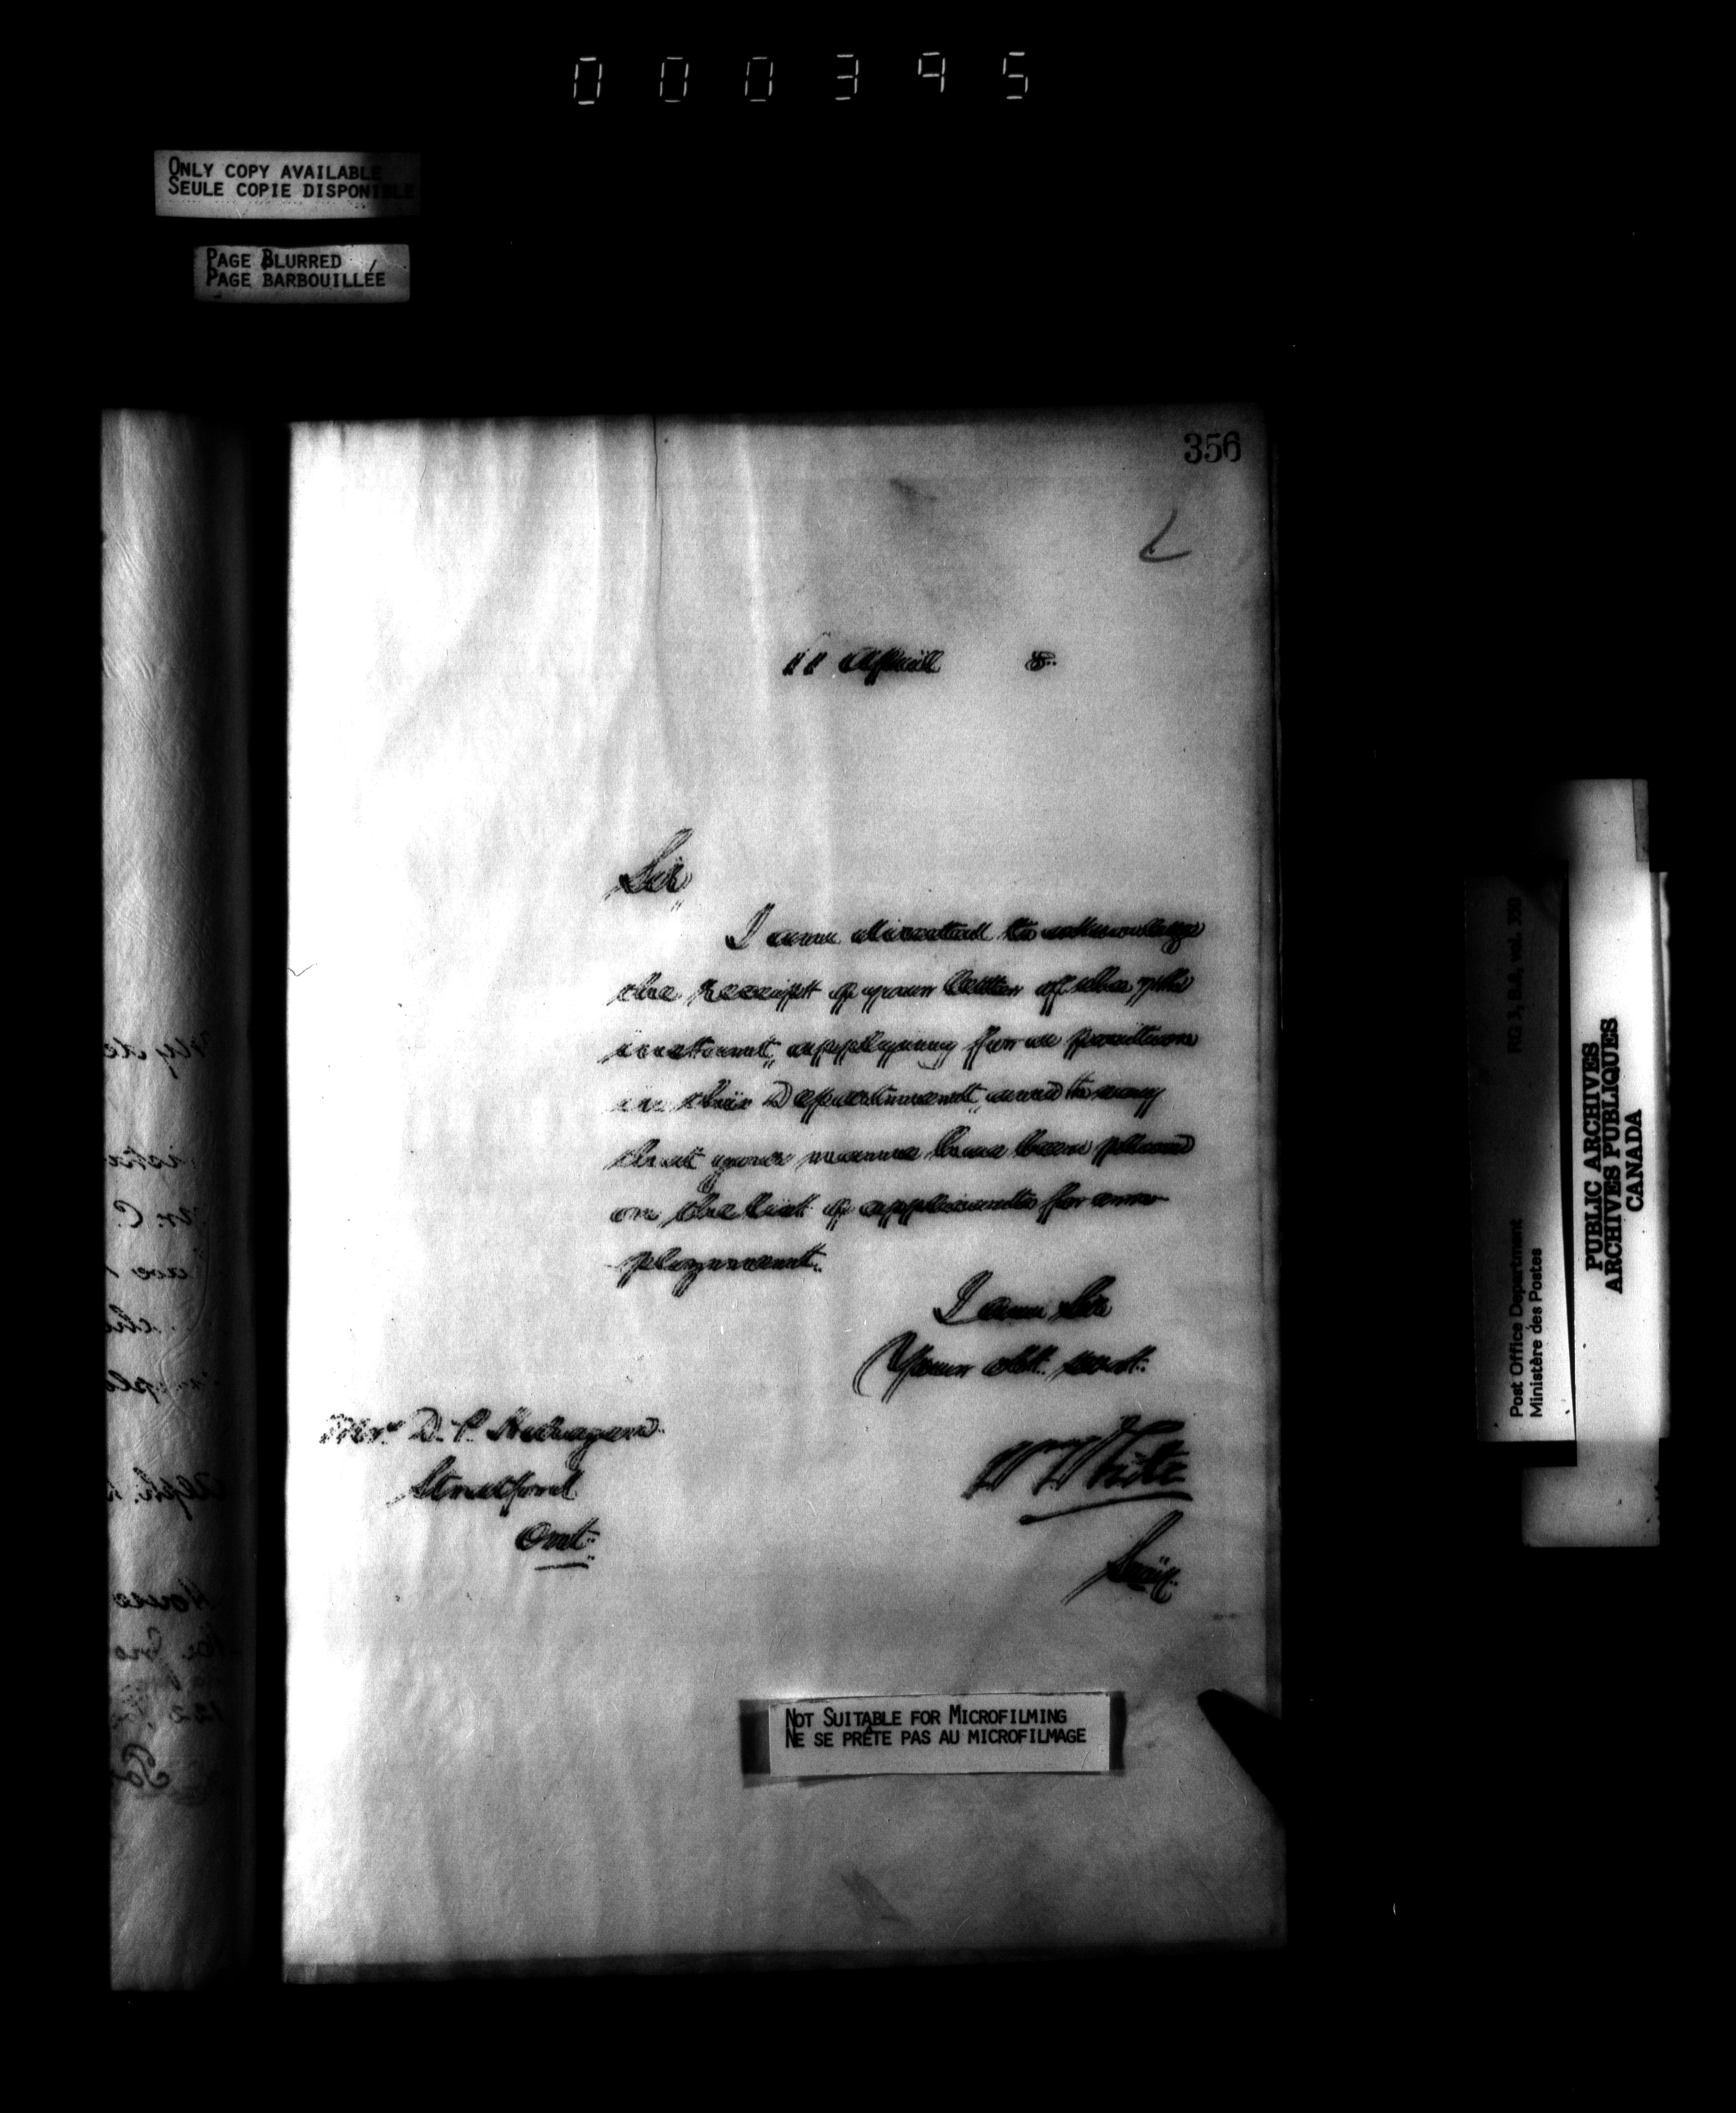 000395
ONLY COPY AVAILABLE
SEULE COPIE DISPONIBLE
PAGE BLURRED
PAGE BARBOUILLÉE
356
11 April 8
Sir
I am directed to acknowledge
the receipt of your letter of the 7th
instant, applying for a position
in this Department, and to say
that your name has been placed
on the list of applicants for em-
ployment.
I am Sir
Your obt. servt.
Mr. D. C.
Stratford
Ont.
Wm White
Secy.
NOT SUITABLE FOR MICROFILMING
NE SE PRÊTE PAS AU MICROFILMAGE
RG 3, D.A.
Post Office Department
Ministère des Postes
PUBLIC ARCHIVES
ARCHIVES PUBLIQUES
CANADA